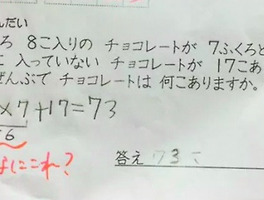 んだい
ろ 8こ入りの チョコレートが 7ふくろと
に 入っていない チョコレートが 17こあ
ぜんぶで チョコレートは 何こありますか。
×7+17=73
56
なにこれ?
答え 73こ